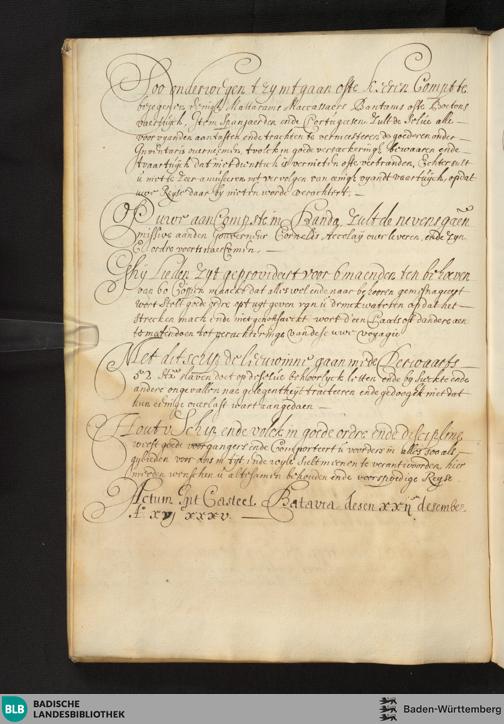 Soo onderwegen t zy int gaan ofte keeren Compt te
bejegenen eenige Mattarams Maccassaers Bantams ofte Boetons
vaertuijch, Item Spanjaerden ende Portugesen Zult de selue alle
voor vyanden aentasten ende trachten te vermeesteren de goederen onder
Inventaris overneemen t volck in goede verseeckeringh bewaaren ende
t vaartuijch dat niet dienstich is vernielen ofte verbranden, Echter sult
u niet te zeer amuseren int vervolgen van eenigh vyandt vaertuijch, opdat
uwe Reyse daer by niet en worde verachtert.
Op uwe aancompste in Banda Zult de nevensgaende
missive aan den Gouverneur Cornelis Accoleij overleveren, ende zyn
E. ordre voorts naercomen
Ghy Lieden Zyt geprovideert voor 6 maenden ten behoeven
van 60 Coppen maackt dat alles wel ende naer behooren gemesnageert
wort Stelt goede ordre opt uytgeven van u drinckwateren opdat het
strecken mach ende niet genootsaeckt wort d'een Plaats oft d'andere aen
te moeten doen tot verachteringe van dese uwe voyagie
Met dit schip de lieden comme gaan mede derwaarts
52 Stx slaven doet op deselve behoorlyck letten ende by sieckte ende
andere ongevallen nae gelegentheyt tracteeren ende gedoocht niet dat
hun eenige overlast wort aangedaen
Hout u Schip ende volck in goede ordre ende discipline
weest goede voorgangers ende Comporteert u voorders in alles soo als
gebieden voor ons in tyt ende wyle sult meenen te verantwoorden, hier
mede wenschen u altesamen behouden ende voorspoedige Reyse
Actum Int Casteel Batavia desen xxij desember
Ao xvj xxxv.
BLB
BADISCHE
LANDESBIBLIOTHEK
Baden-Württemberg